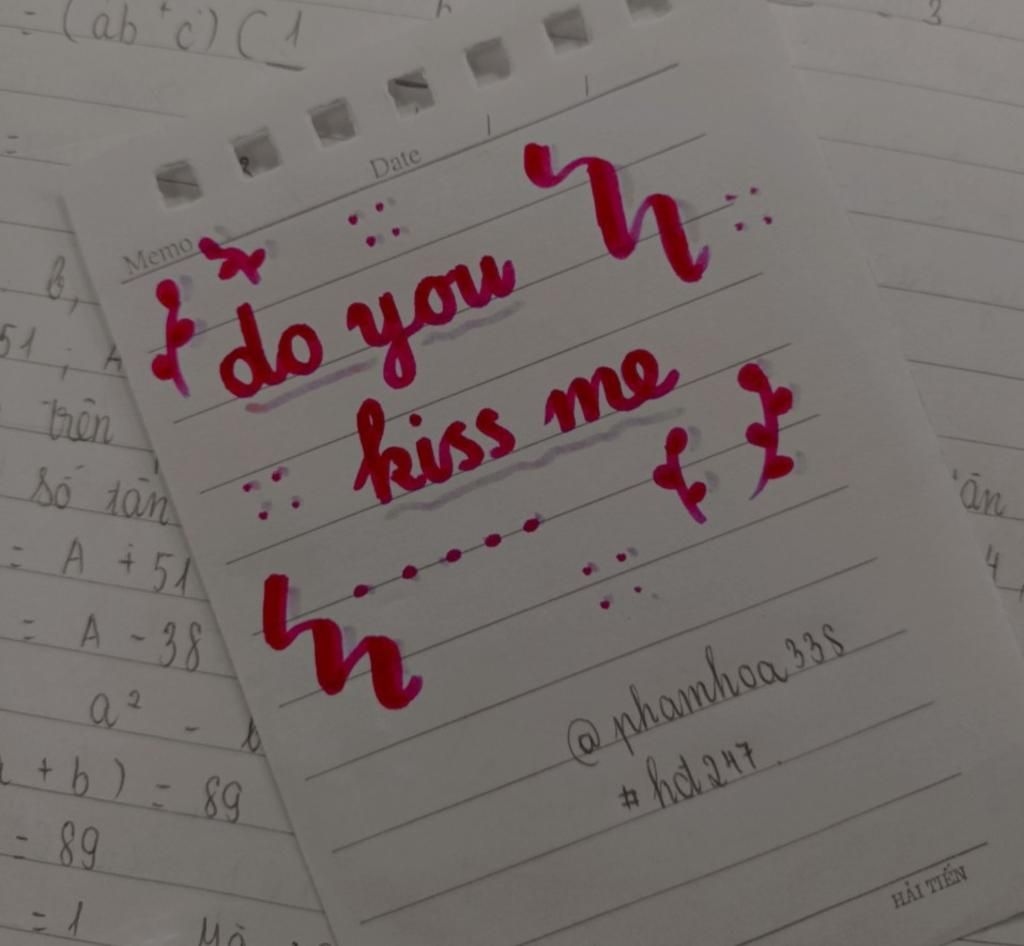 = (ab + c) (1
3
=
Memo
Date
b,
51 ; A
trên
số tân
= A + 51
= A - 38
a² -
+ b) = 89
= 89
= 1
do you
kiss me
@phamhoa338
#hd247.
HẢI TIẾN
ân
4